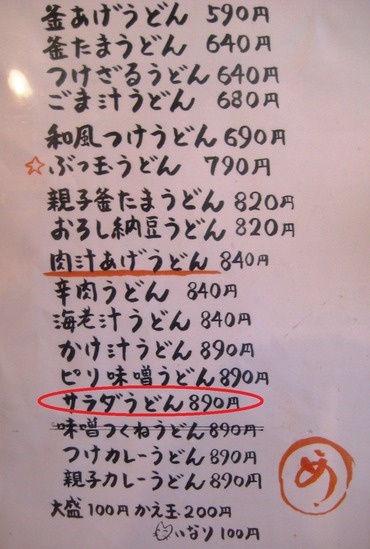 釜あげうどん 590円
釜たまうどん 640円
つけざるうどん 640円
ごま汁うどん 680円
和風つけうどん 690円
☆ぶっ玉うどん 790円
親子釜たまうどん 820円
おろし納豆うどん 820円
肉汁あげうどん 840円
辛肉うどん 840円
海老汁うどん 840円
かけ汁うどん 890円
ピリ味噌うどん 890円
サラダうどん 890円
味噌つくねうどん 890円
つけカレーうどん 890円
親子カレーうどん 890円
大盛100円 かえ玉200円
いなり100円
め